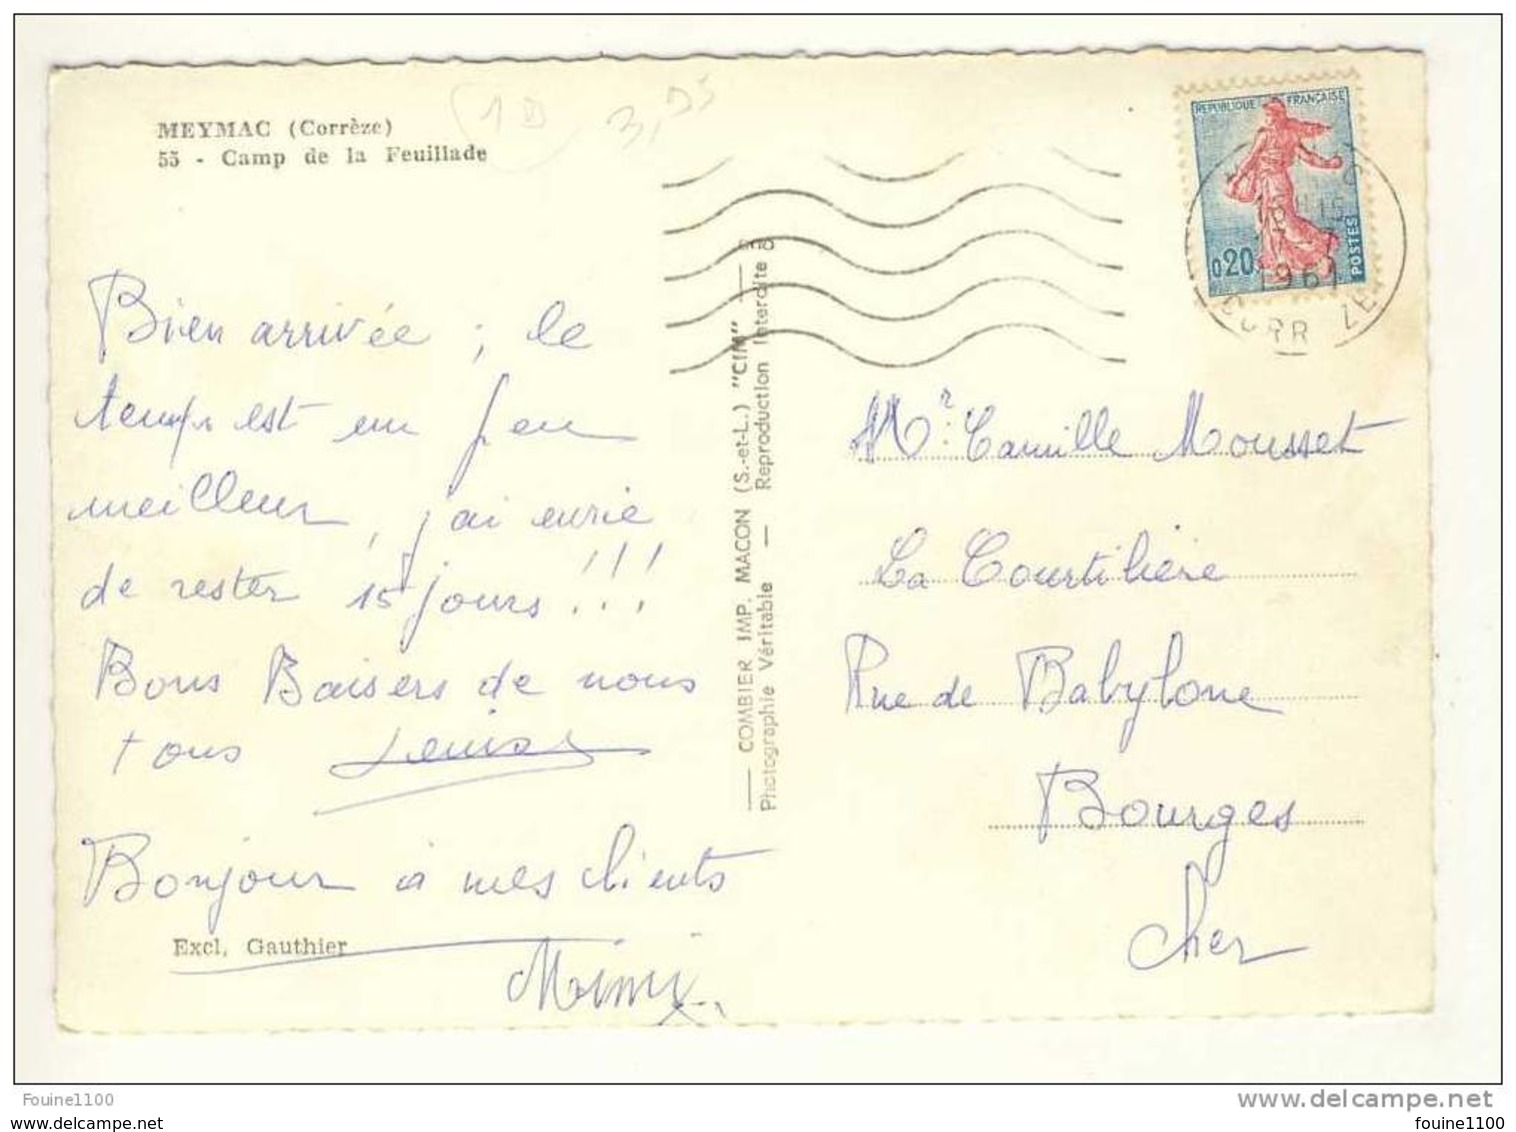 MEYMAC (Corrèze)
55 - Camp de la Feuillade
Bien arrivée ; le
temps est un peu
meilleur, j'ai envie
de rester 15 jours !!!
Bons Baisers de nous
tous Louise
Bonjour à mes clients
Excl. Gauthier
Mimi
COMBIER IMP. MACON (S.-et-L.) "CIM"
Photographie Véritable — Reproduction Interdite
REPUBLIQUE FRANÇAISE
0,20
POSTES
1961
Mr. Camille Mousset
La Courtilière
Rue de Babylone
Bourges
Cher
Fouine1100
fouine1100
www.delcampe.net
fouine1100